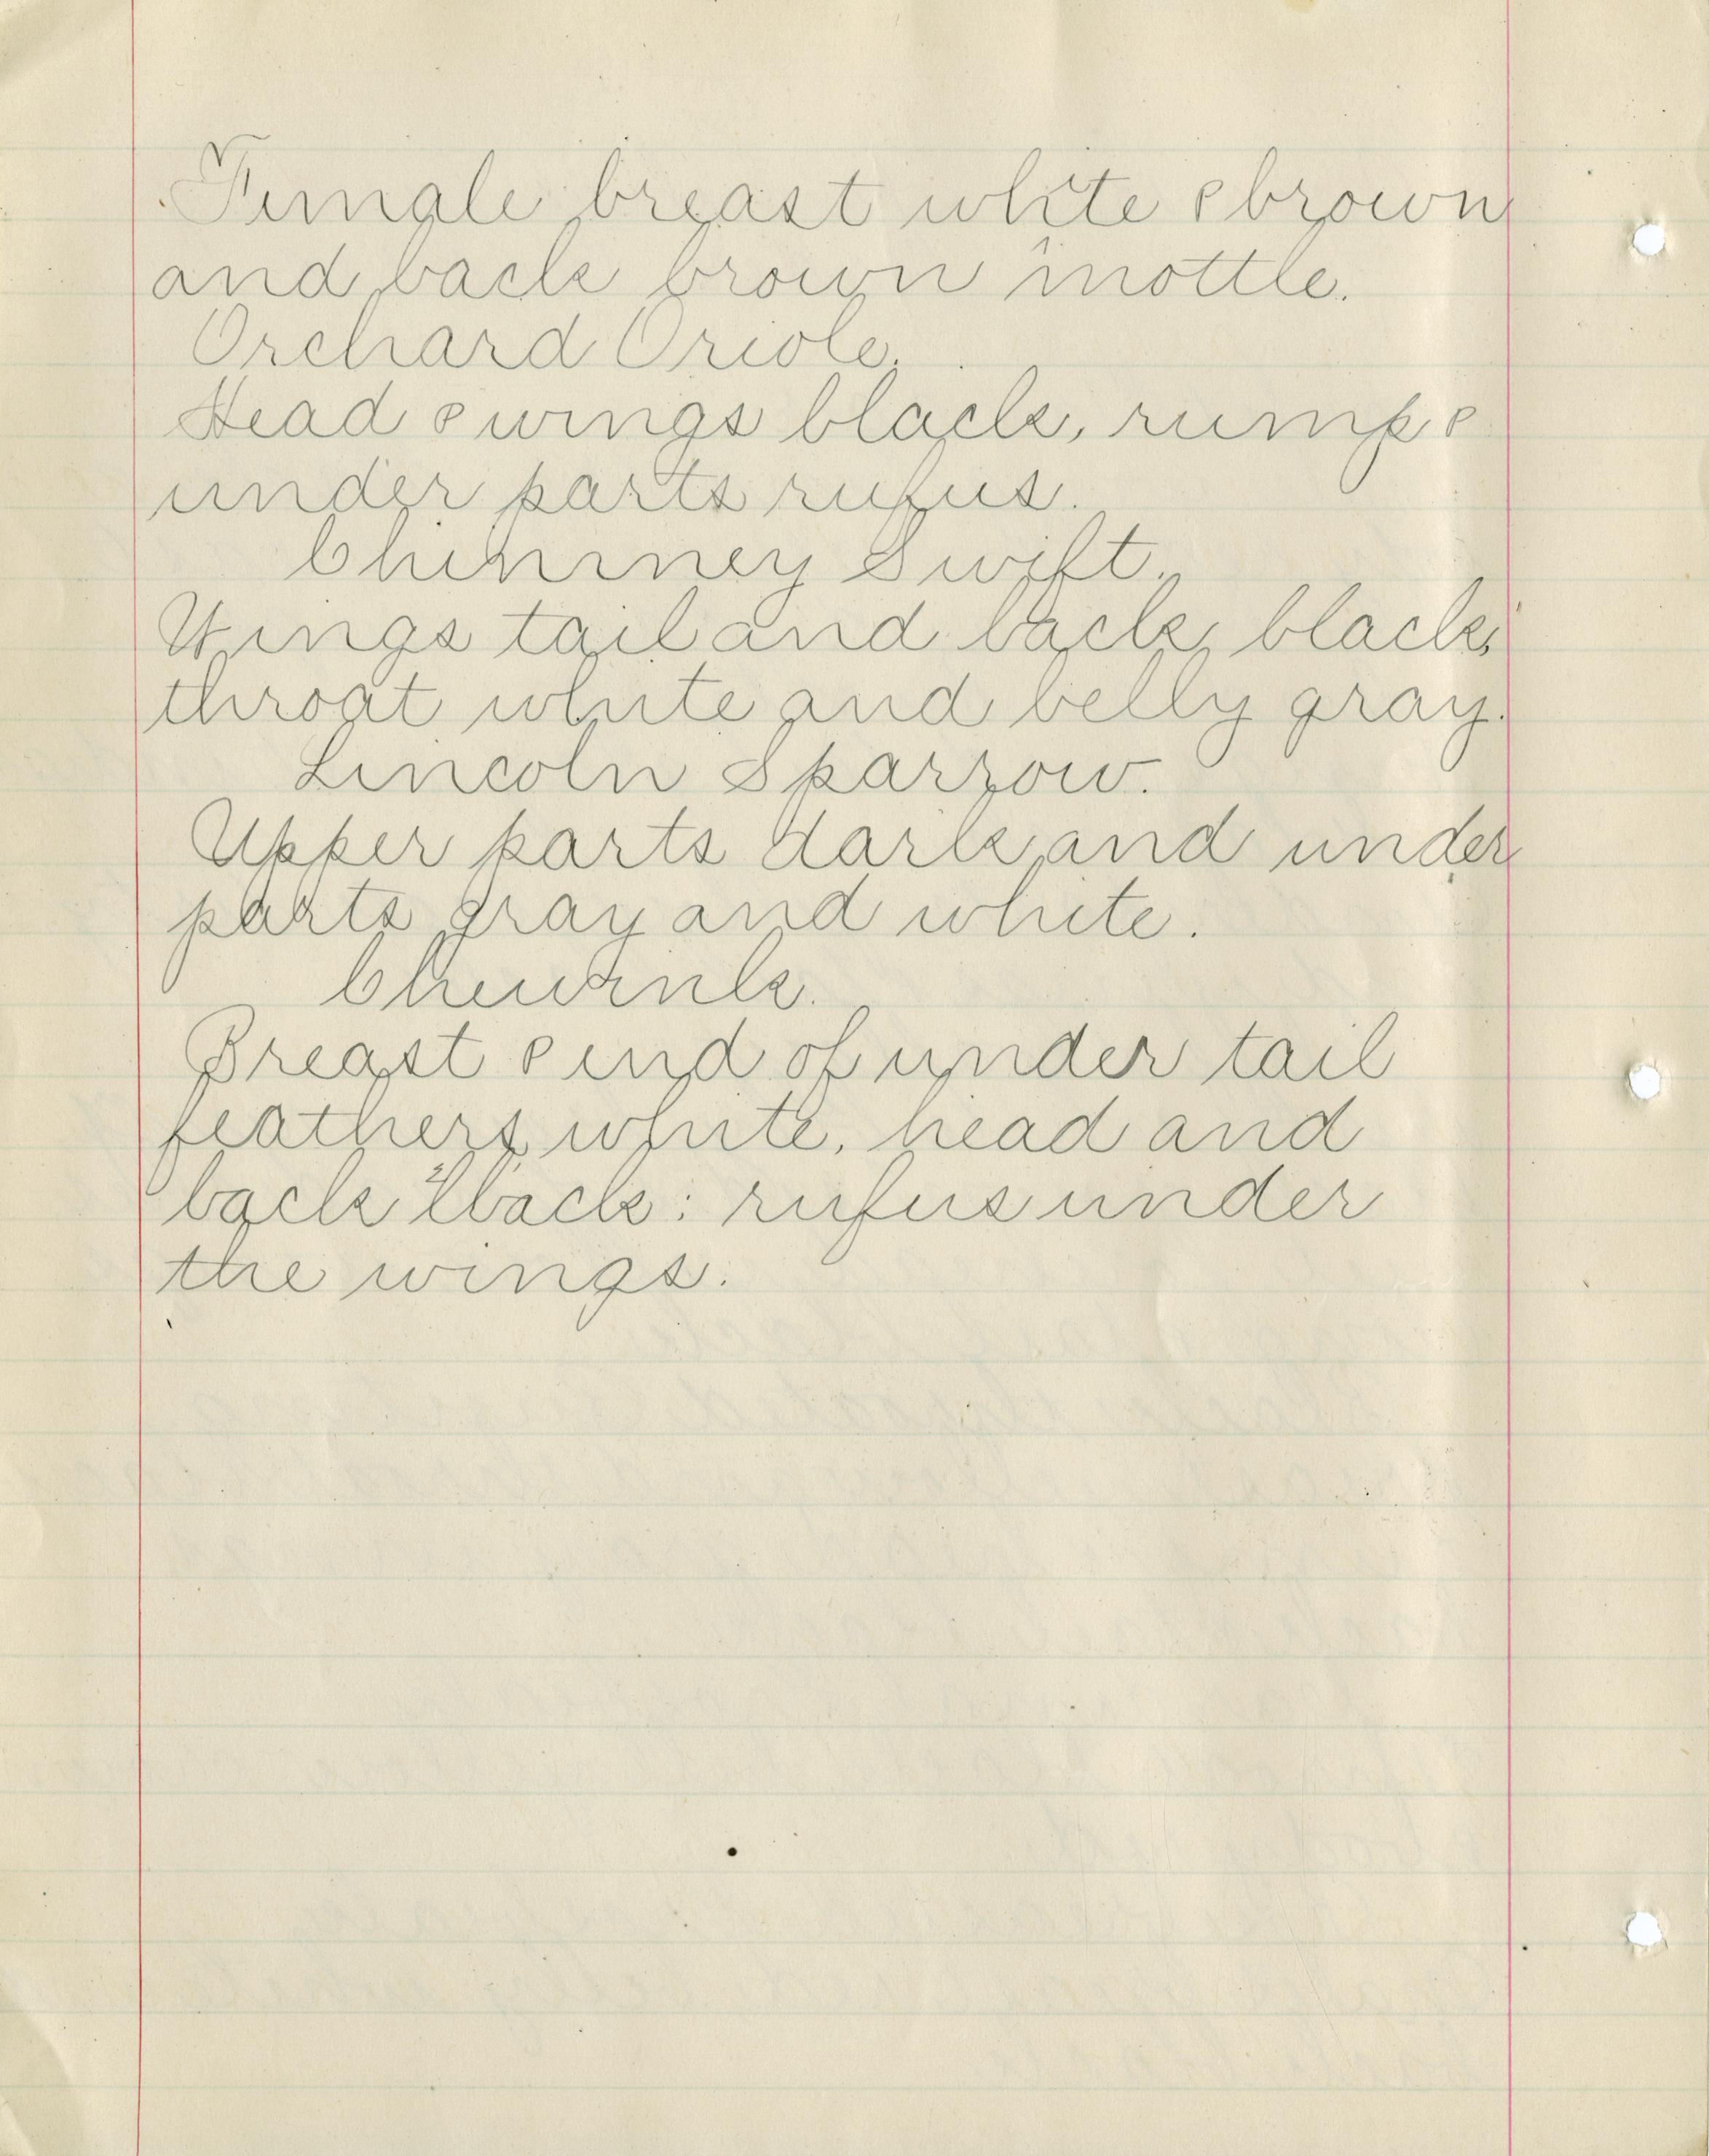 Female breast white & brown
and back brown mottle.
Orchard Oriole.
Head & wings black, rump &
under parts rufus.
Chimney Swift.
Wings tail and back, black,
throat white and belly gray.
Lincoln Sparrow.
Upper parts dark and under
parts gray and white.
Chewink.
Breast & end of under tail
feathers white, head and
back black: rufus under
the wings.